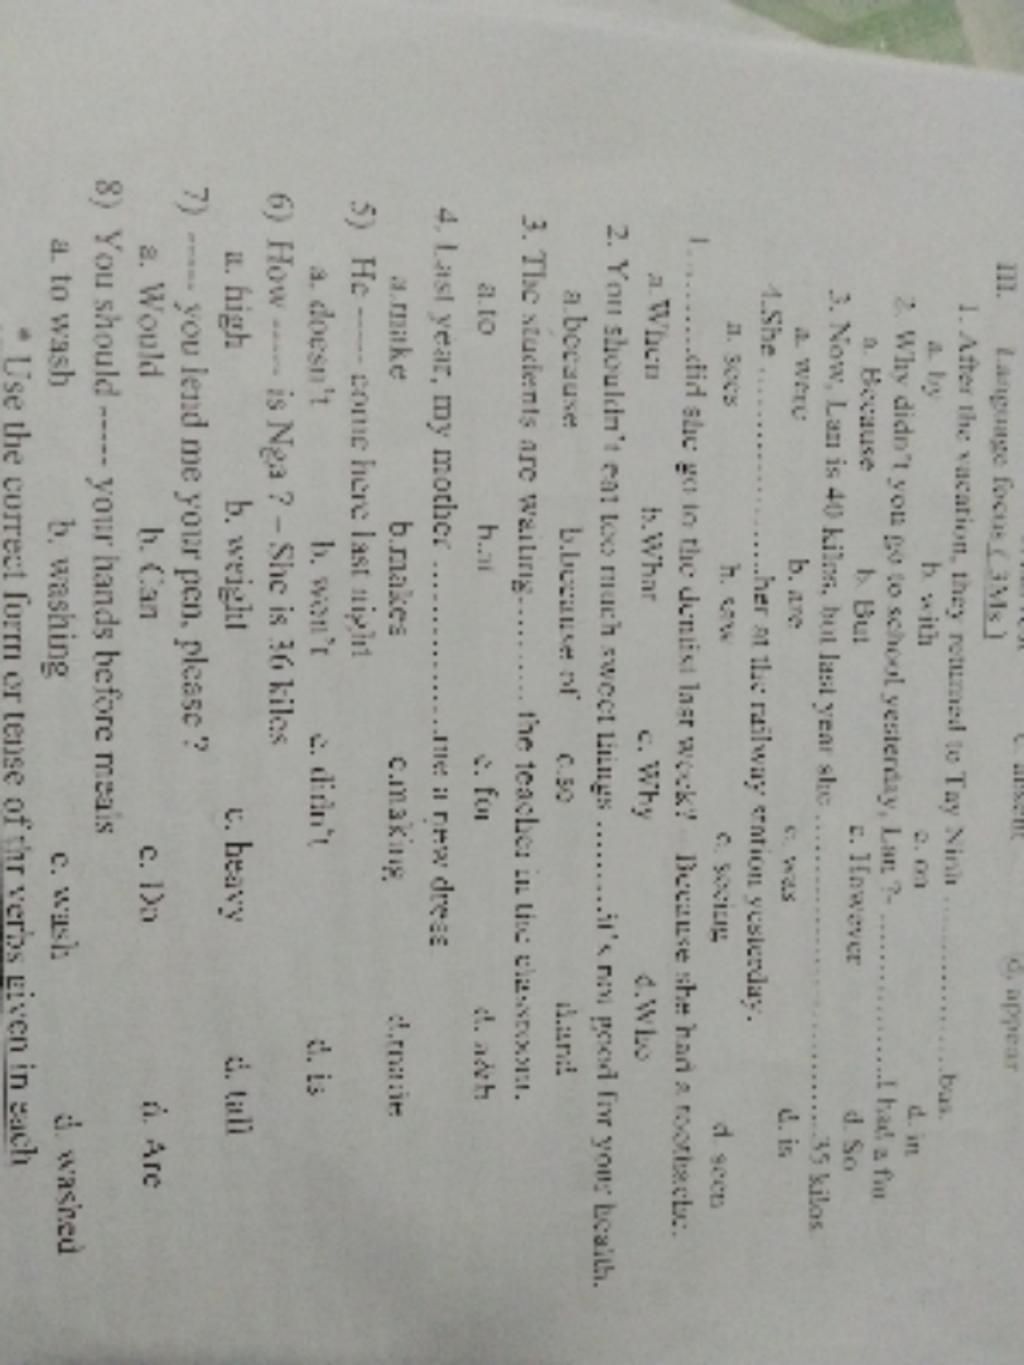 c. absent d. appear
III. Language focus ( 3Ms )
1. After the vacation, they returned to Tay Ninh ....................bus.
a. by b. with c. on d. in
2. Why didn't you go to school yesterday, Lan ?- ....................I had a flu
a. Because b. But c. However d. So
3. Now, Lan is 40 kilos, but last year she ........................................35 kilos
a. were b. are c. was d. is
4.She ........................her at the railway station yesterday.
a. sees b. saw c. seeing d. seen
1...........did she go to the dentist last week? – Because she had a toothache.
a.When b.What c. Why d.Who
2. You shouldn't eat too much sweet things ..........it's not good for your health.
a.because b.because of c.so d.and
3. The students are waiting...........the teacher in the classroom.
a.to b.at c. for d. with
4. Last year, my mother ....................me a new dress
a.make b.makes c.making d.made
5) He ----- come here last night
a. doesn't b. won't c. didn't d. is
6) How ----- is Nga ? – She is 36 kilos
a. high b. weight c. heavy d. tall
7) ----- you lend me your pen, please ?
a. Would b. Can c. Do d. Are
8) You should ----- your hands before meals
a. to wash b. washing c. wash d. washed
* Use the correct form or tense of thr verbs given in each